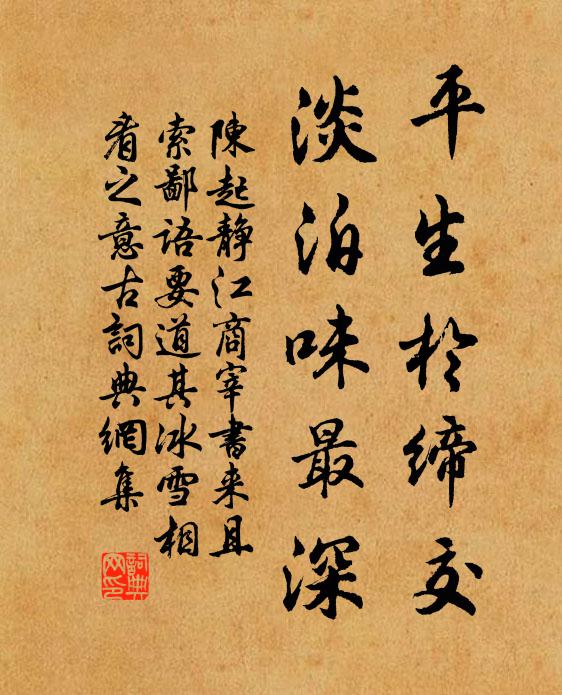 平生於締交
淡泊味最深
陳起靜江商宰書来且
索鄙語要道其冰雪相
看之意古詞典網集
詞典網印